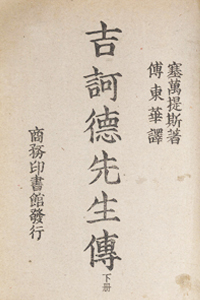 塞萬提斯著
傅東華譯
吉訶德先生傳
下册
商務印書館發行